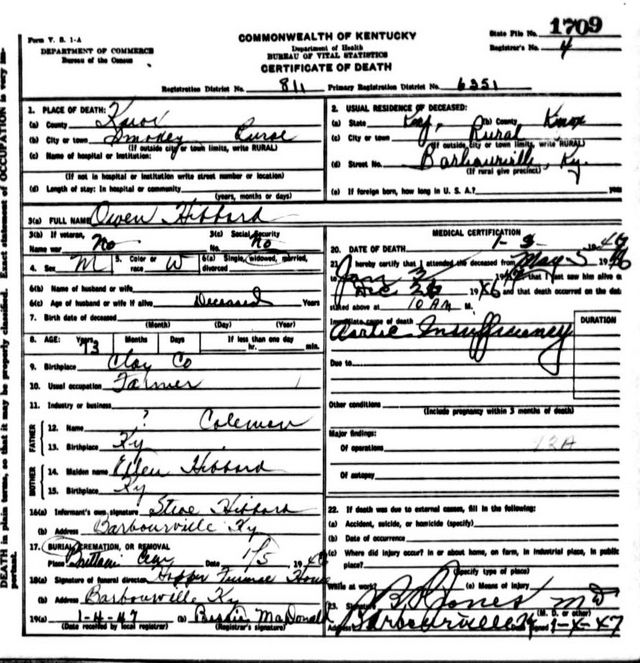 Form V. S. 1-A
DEPARTMENT OF COMMERCE
Bureau of the Census
COMMONWEALTH OF KENTUCKY
Department of Health
BUREAU OF VITAL STATISTICS
CERTIFICATE OF DEATH
State File No. 1709
Registrar's No. 4
Registration District No. 811 Primary Registration District No. 6351
DEATH in plain terms, so that it may be properly classified. Exact statement of OCCUPATION is very important.
1. PLACE OF DEATH:
(a) County Knox
(b) City or town Smokey Rural
(If outside city or town limits, write RURAL)
(c) Name of hospital or institution:
(If not in hospital or institution write street number or location)
(d) Length of stay: In hospital or community
(years, months or days)
2. USUAL RESIDENCE OF DECEASED:
(a) State Ky. (b) County Knox
(c) City or town Rural
(If outside city or town limits, write RURAL)
(d) Street No. Barbourville, Ky.
(If rural give precinct)
(e) If foreign born, how long in U. S. A.? years
3(a) FULL NAME Owen Hibbard
3(b) If veteran,
Name war No
3(c) Social Security
No. No
4. Sex M
5. Color or
race W
6(a) Single, widowed, married,
divorced
6(b) Name of husband or wife
6(c) Age of husband or wife if alive Deceased Years
7. Birth date of deceased
(Month) (Day) (Year)
8. AGE: Years 73 Months Days If less than one day
hr. min.
9. Birthplace Clay Co
10. Usual occupation Farmer
11. Industry or business
FATHER
12. Name ? Coleman
13. Birthplace Ky
MOTHER
14. Maiden name Ellen Hibbard
15. Birthplace Ky
16(a) Informant's own signature Steve Hibbard
(b) Address Barbourville Ky
17. BURIAL, CREMATION, OR REMOVAL
Place Cem Date 1/5 19
18(a) Signature of funeral director Hopper Funeral Home
(b) Address Barbourville Ky
19(a) 1-4-47 (b) MacDonald
(Date received by local registrar) (Registrar's signature)
MEDICAL CERTIFICATION
20. DATE OF DEATH 1-3- 1947
21. I hereby certify that I attended the deceased from May 5 1946
Jan 3 1947 that I last saw him alive on
Dec 26 1946 and that death occurred on the date
stated above at 10 AM M.
Immediate cause of death
Aortic Insufficiency
DURATION
Due to
Other conditions
(Include pregnancy within 3 months of death)
Major findings:
Of operations
Of autopsy
22. If death was due to external causes, fill in the following:
(a) Accident, suicide, or homicide (specify)
(b) Date of occurrence
(c) Where did injury occur? in or about home, on farm, in industrial place, in public
place?
(Specify type of place)
While at work? (e) Means of injury
23. Signature Jones MD
(M. D. or other)
Barbourville Ky 1-4-47